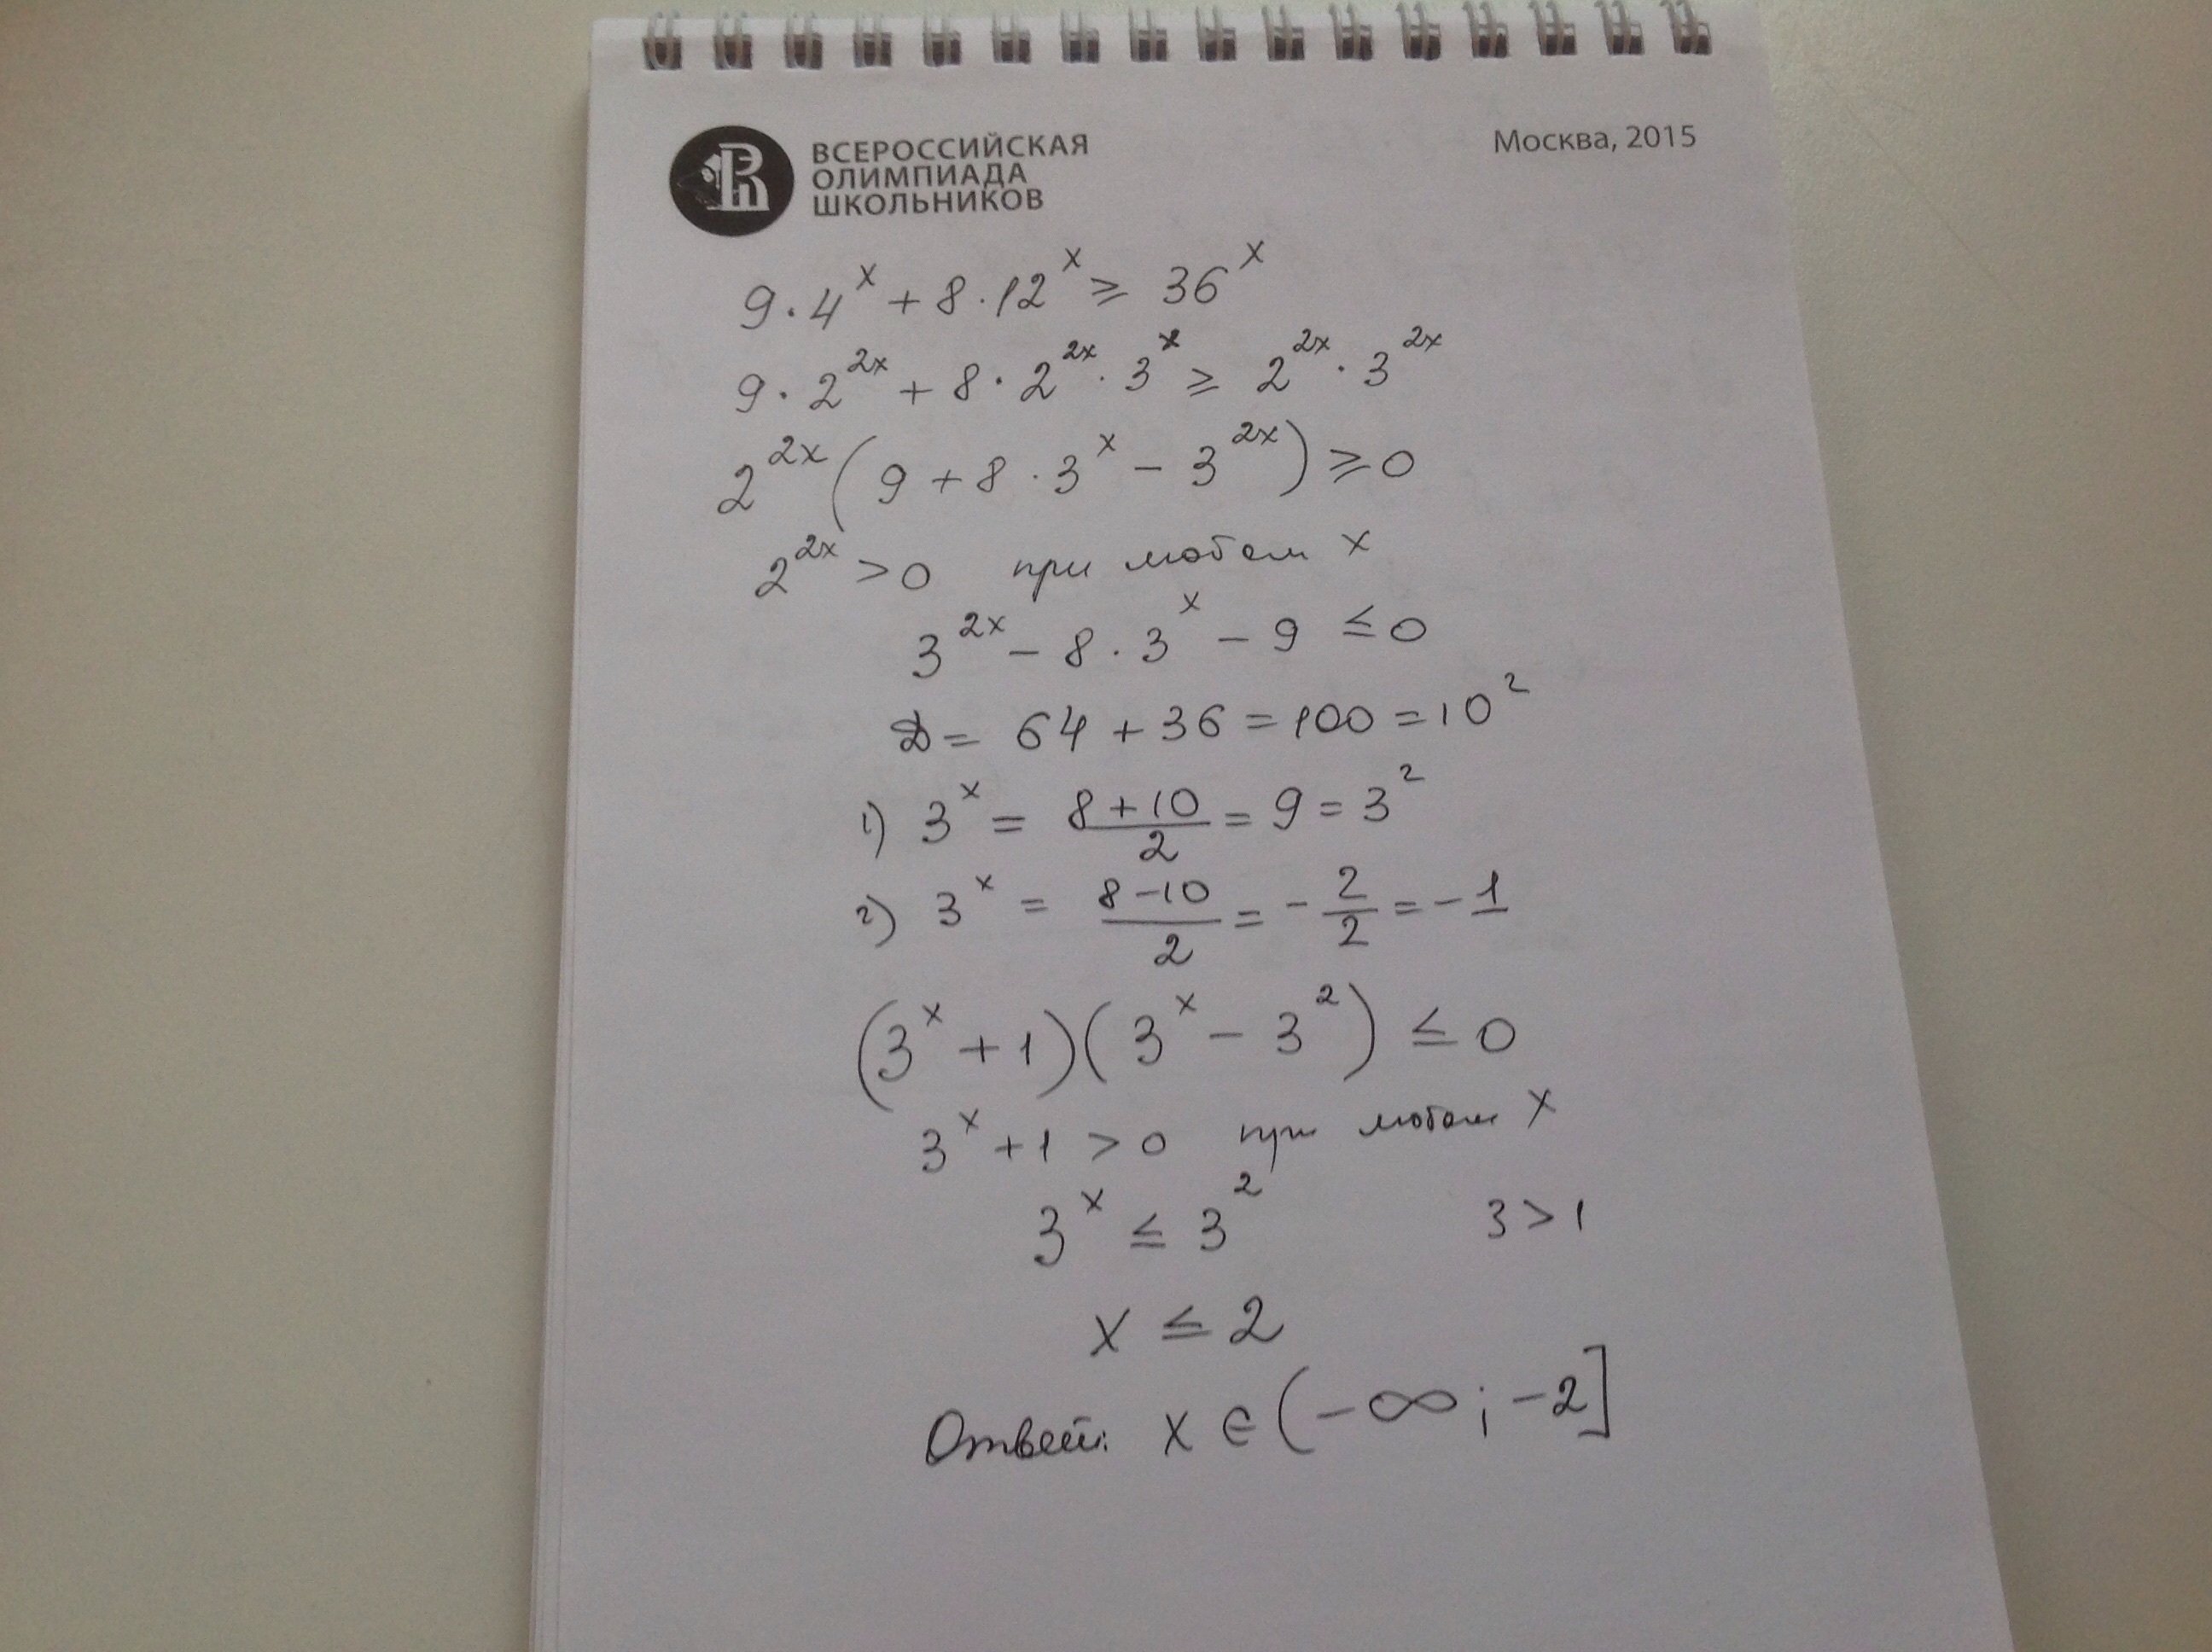 ВСЕРОССИЙСКАЯ
ОЛИМПИАДА
ШКОЛЬНИКОВ
Москва, 2015
9 · 4^x + 8 · 12^x ≥ 36^x
9 · 2^{2x} + 8 · 2^{2x} · 3^x ≥ 2^{2x} · 3^{2x}
2^{2x} (9 + 8 · 3^x − 3^{2x}) ≥ 0
2^{2x} > 0 при любом x
3^{2x} − 8 · 3^x − 9 ≤ 0
D = 64 + 36 = 100 = 10^2
1) 3^x = \frac{8 + 10}{2} = 9 = 3^2
2) 3^x = \frac{8 − 10}{2} = − \frac{2}{2} = − 1
(3^x + 1)(3^x − 3^2) ≤ 0
3^x + 1 > 0 при любом x
3^x ≤ 3^2 3 > 1
x ≤ 2
Ответ: x ∈ (−∞; −2]